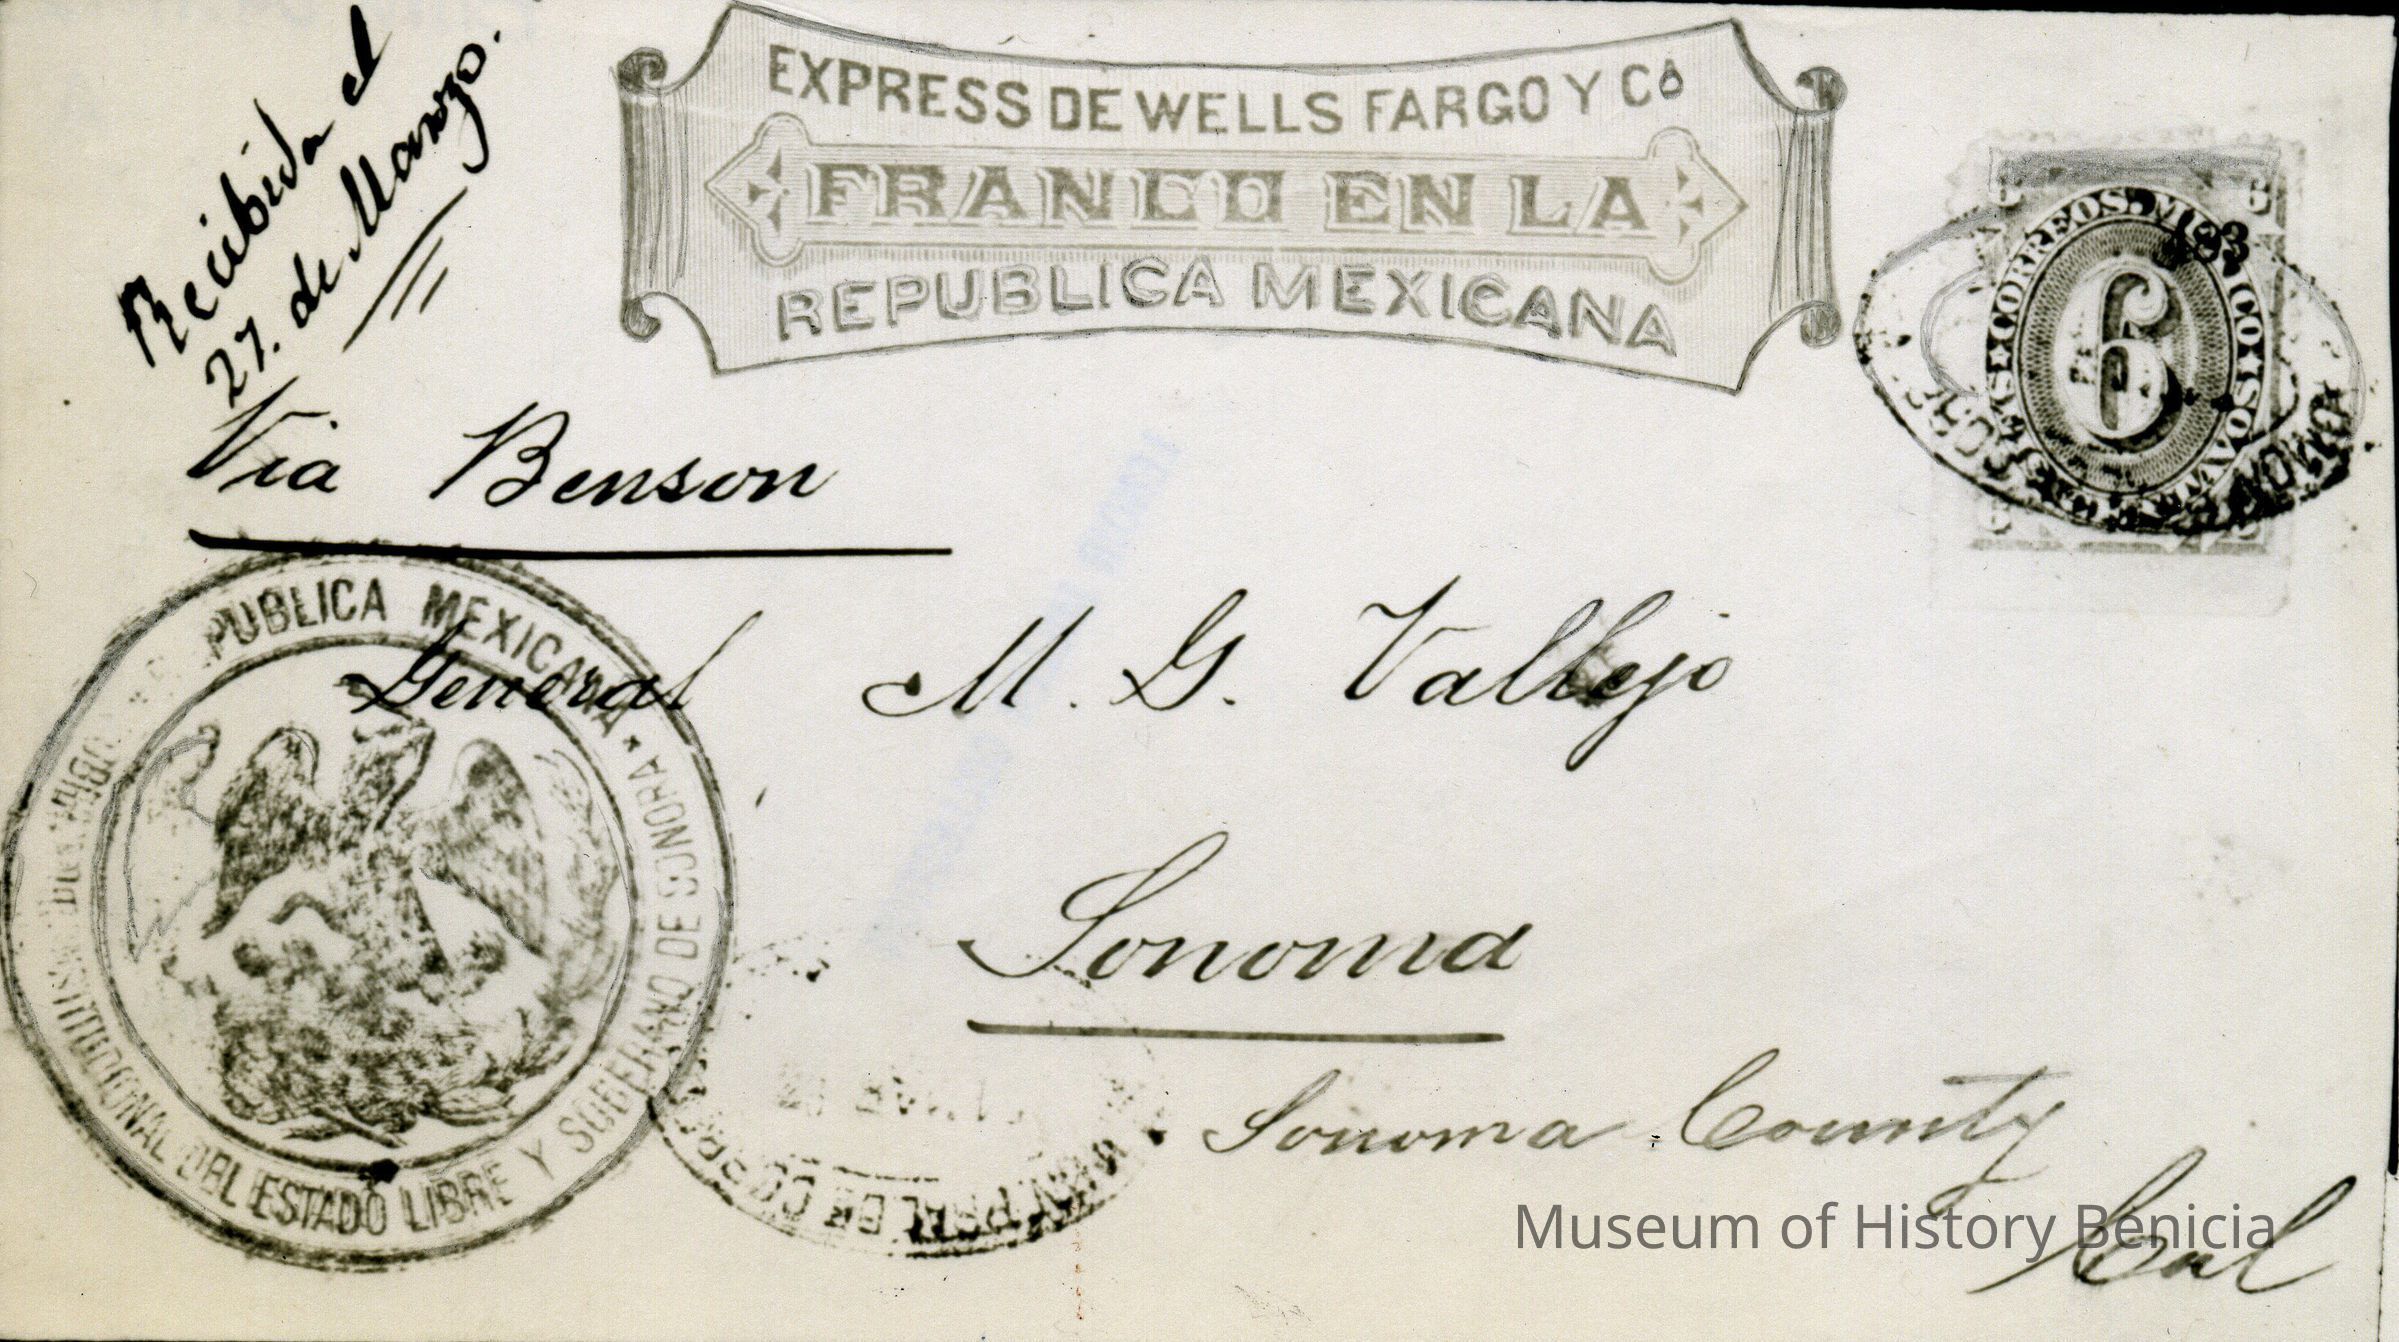 Recibida el
27. de Marzo.
EXPRESS DE WELLS FARGO Y Co
FRANCO EN LA
REPUBLICA MEXICANA
CORREOS MEXICO
6
Via Benson
General M. G. Vallejo
Sonoma
Sonoma County
Cal
PUBLICA MEXICANA
DEL ESTADO LIBRE Y SOBERANO DE SONORA
Museum of History Benicia